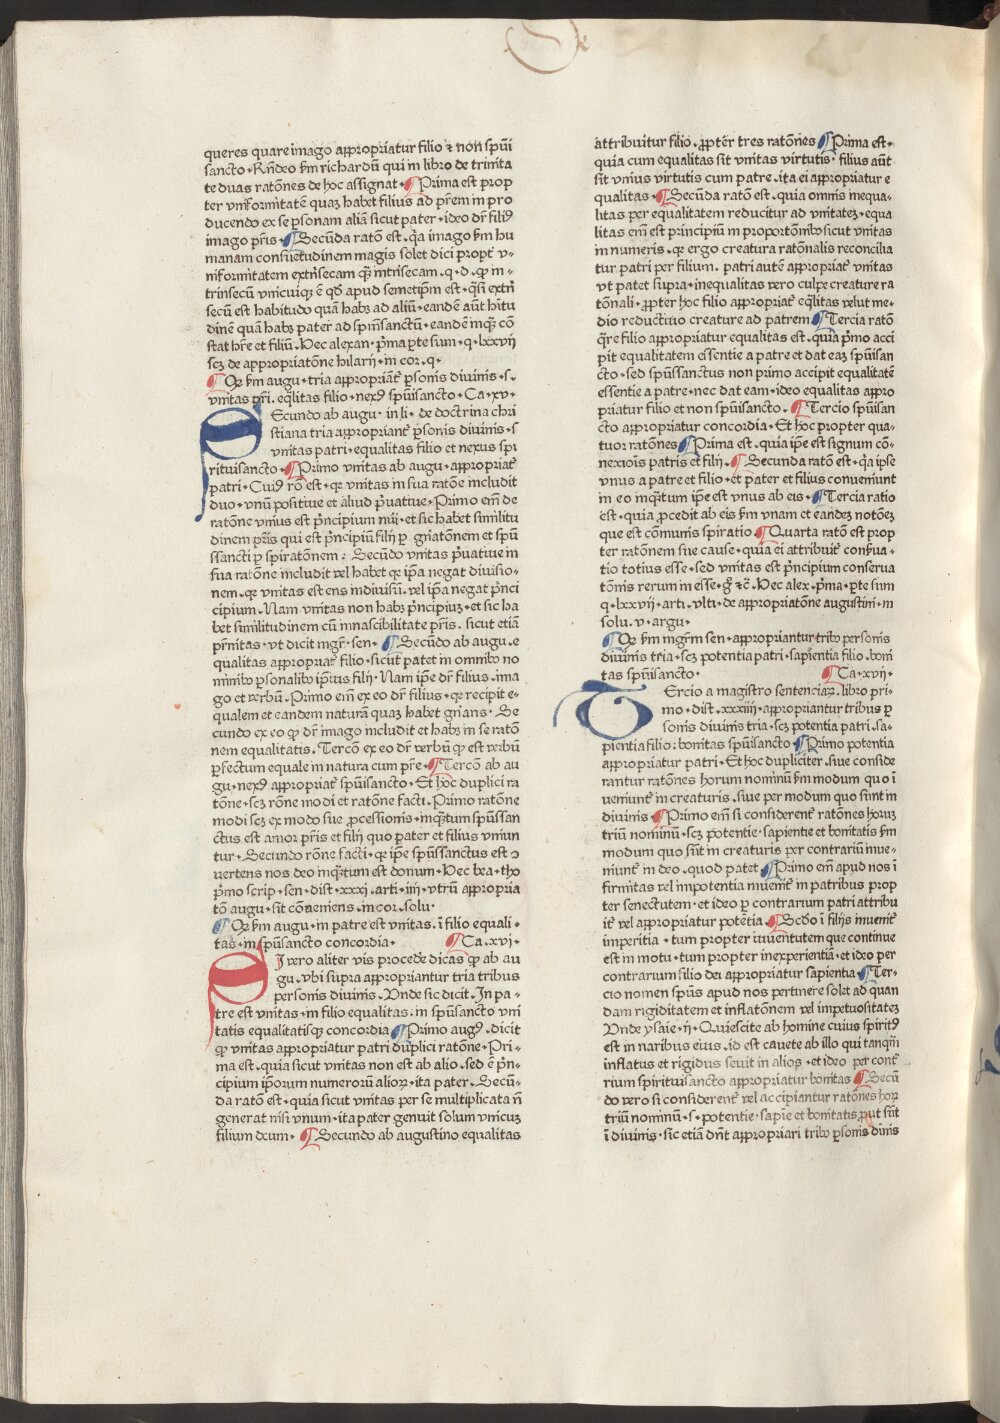 De
queres quare imago appropriatur filio ⁊ non spūi
sancto · Rñdeo ẜm richardū qui in libro de trinita
te duas ratōnes de hoc assignat · ¶ Prima est prop
ter vniformitatem quaꝫ habet filius ad p̄rem in pro
ducendo ex se ꝑsonam aliā sicut pater · ideo dr̄ filiꝰ
imago pr̄is · ¶ Secūda ratō est · q̄a imago ẜm hu
manam consuetudinem magis solet dici propt̄ v-
niformitatem extn̄secam qꝫ̄ intn̄secam · q · d · ꝙ in-
trinsecū vnicuiqꝫ ē qđ apud semetip̄m est · q̄si extn̄
secū est habitudo quā habꝫ ad aliū · eandē aūt hītu
dinē quā habꝫ pater ad spm̄sanctū · eandē inqꝫ cō
stat hr̄e et filiū . Hec alexan · p̄ma ꝑte sum · q · lxxvij
scꝫ de appropriatōne hilarij · in cor · q ·
¶ Qꝫ ẜm augu · tria appropriāt̄ ꝑsonis diuinis · s ·
vnitas pr̄i · eq̄litas filio · nexꝰ spūisancto · Ca · xv ·
Secundo ab augu · in li · de doctrina chri
stiana tria appropriant̄ ꝑsonis diuinis · s
vnitas patri · equalitas filio et nexus spi
rituisancto · ¶ Primo vnitas ab augu · appropriat̄
patri · Cuiꝰ rō est · qꝫ vnitas in sua ratōne includit
duo · vnū positiue et aliud p̄uatiue · Primo em̄ de
ratōne vnius est p̄ncipium nūi · et sic habet similitu
dinem pr̄is qui est p̄ncipiū filij ꝑ gn̄atōnem et spū
ssancti ꝑ spiratōnem : Secūdo vnitas p̄uatiue in
sua ratōne includit vel habet qꝫ ip̄a negat diuisio-
nem · qꝫ vnitas est ens indiuisū . vel ip̄a negat p̄nci
cipium . Nam vnitas non habꝫ p̄ncipiuꝫ · et sic ha
bet similitudinem cū innascibilitate pr̄is . sicut etiā
pr̄nitas · vt dicit mgr̄ · sen · ¶ Secūdo ab augu · e
qualitas appropriat̄ filio · sicut patet in omnibꝰ no
minibꝰ ꝑsonalibꝰ ip̄ius filij · Nam ip̄e dr̄ filius . ima
go et verbū . Primo em̄ ex eo dr̄ filius · qꝫ recipit e-
qualem et eandem naturā quaꝫ habet gn̄ans · Se
cundo ex eo ꝙ dr̄ imago includit et habꝫ in se ratō
nem equalitatis . Tercō ex eo dr̄ verbū ꝙ est verbū
ꝑfectum equale in natura cum pr̄e · ¶ Tercō ab au
gu · nexꝰ appropriat̄ spūisancto · Et hoc duplici ra
tōne · scꝫ rōne modi et ratōne facti . Primo ratōne
modi scꝫ ex modo sue ꝓcessionis · inqꝫ̄tum spūssan
ctus est amor pr̄is et filij quo pater et filius vniun
tur · Secundo rōne facti · qꝫ ip̄e spūssanctus est ↄ
uertens nos deo inqꝫ̄tum est donum · Hec bea · tho
p̄mo scrip · sen · dist · xxxi · arti · iij · vtrū appropria
tō augu · sit cōueniens . in cor · solu ·
¶ Qꝫ ẜm augu · in patre est vnitas . ī filio equali ·
tas · in spūsancto concordia · ¶ Ca · xvi ·
Si vero aliter vis procede dicas ꝙ ab au
gu · vbi supra appropriantur tria tribus
personis diuinis . Vnde sic dicit . In pa-
tre est vnitas · in filio equalitas . in spūsancto vni
tatis equalitatisqꝫ concordia ¶ Primo augꝰ · dicit
ꝙ vnitas appropriatur patri duplici ratōne · Pri-
ma est · quia sicut vnitas non est ab alio . sed ē p̄n-
cipium ip̄orum numerorū alioꝝ · ita pater . Secū-
da ratō est · quia sicut vnitas per se multiplicata ñ
generat nisi vnum · ita pater genuit solum vnicuꝫ
filium deum · ¶ Secundo ab augustino equalitas
attribuitur filio . ꝓpter tres ratōnes ¶ Prima est ·
quia cum equalitas sit vnitas virtutis · filius aūt
sit vnius virtutis cum patre · ita ei appropriatur e
qualitas · ¶ Secūda ratō est . quia omnis inequa-
litas per equalitatem reducitur ad vnitateꝫ · equa
litas em̄ est principiū in proportōnibꝰ sicut vnitas
in numeris · qꝫ ergo creatura ratōnalis reconcilia
tur patri per filium . patri autē appropriat̄ vnitas
vt patet supra · inequalitas vero culpe creature ra
tōnali · ꝓpter hoc filio appropriat̄ eq̄litas velut me-
dio reductiuo creature ad patrem ¶ Tercia ratō
q̄re filio appropriatur equalitas est . quia p̄mo acci
pit equalitatem essentie a patre et dat eaꝫ spūisan
cto · sed spūssanctus non primo accipit equalitatē
essentie a patre · nec dat eam · ideo equalitas appro
priatur filio et non spūisancto . ¶ Tercio spūisan
cto appropriatur concordia · Et hoc propter qua-
tuor ratōnes ¶ Prima est . quia ip̄e est signum cō-
nexiōis patris et filij . ¶ Secunda ratō est · q̄a ipse
vnus a patre et filio · et pater et filius conueniunt
in eo inqꝫ̄tum ip̄e est vnus ab eis · ¶ Tercia ratio
est · quia ꝓcedit ab eis ẜm vnam et eandeꝫ notōeꝫ
que est cōmunis spiratio ¶ Quarta ratō est prop
ter ratōnem siue cause · quia ei attribuit̄ conẜua-
tio totius esse · sed vnitas est p̄ncipium conserua
tōnis rerum in esse · g̊ ⁊c̄ . Hec alex · p̄ma · ꝑte sum
q · lxxvij · arti . vlti · de appropriatōne augustini · in
solu . v · argu ·
¶ Qꝫ ẜm mgr̄m sen · appropriantur tribꝰ personis
diuinis tria · scꝫ potentia patri · sapientia filio . boni
tas spūisancto · ¶ Ca · xvij ·
Tercio a magistro sentenciaꝝ . libro pri-
mo · dist · xxxiiij · appropriantur tribus ꝑ
sonis diuinis tria · scꝫ potentia patri . sa-
pientia filio : bonitas spūisancto ¶ Primo potentia
appropriatur patri · Et hoc dupliciter . siue conside
rantur ratōnes horum nominū ẜm modum quo ī
ueniunt̄ in creaturis . siue per modum quo sunt in
diuinis ¶ Primo em̄ si considerent̄ ratōnes horuꝫ
triū nominū · scꝫ potentie · sapientie et bonitatis ẜm
modum quo sūt in creaturis per contrariū inue-
niunt̄ in deo . quod patet ¶ Primo em̄ apud nos ī
firmitas vel impotentia inuenit̄ in patribus prop
ter senectutem · et ideo ꝑ contrarium patri attribu
it̄ vel appropriatur potētia . ¶ Scđo ī filijs inuenit̄
imperitia · tum propter iuuentutem que continue
est in motu · tum propter inexperientiā · et ideo per
contrarium filio dei appropriatur sapientia · ¶ Ter-
cio nomen spūs apud nos pertinere solet ad quan
dam rigiditatem et inflatōnem vel impetuositateꝫ
Vnde ysaie · ij · Quiescite ab homine cuius spiritꝰ
est in naribus eius . id est cauete ab illo qui tanqꝫ̄
inflatus et rigidus seuit in alios · et ideo per cont̄
rium spirituisancto appropriatur bonitas ¶ Secū
do vero si considerent̄ vel accipiantur ratōnes hoꝝ
triū nominū · s · potentie · sapīe et bonitatis ꝓut sūt
ī diuinis · sic etiā dn̄t appropriari tribꝰ ꝑsonis diīnis